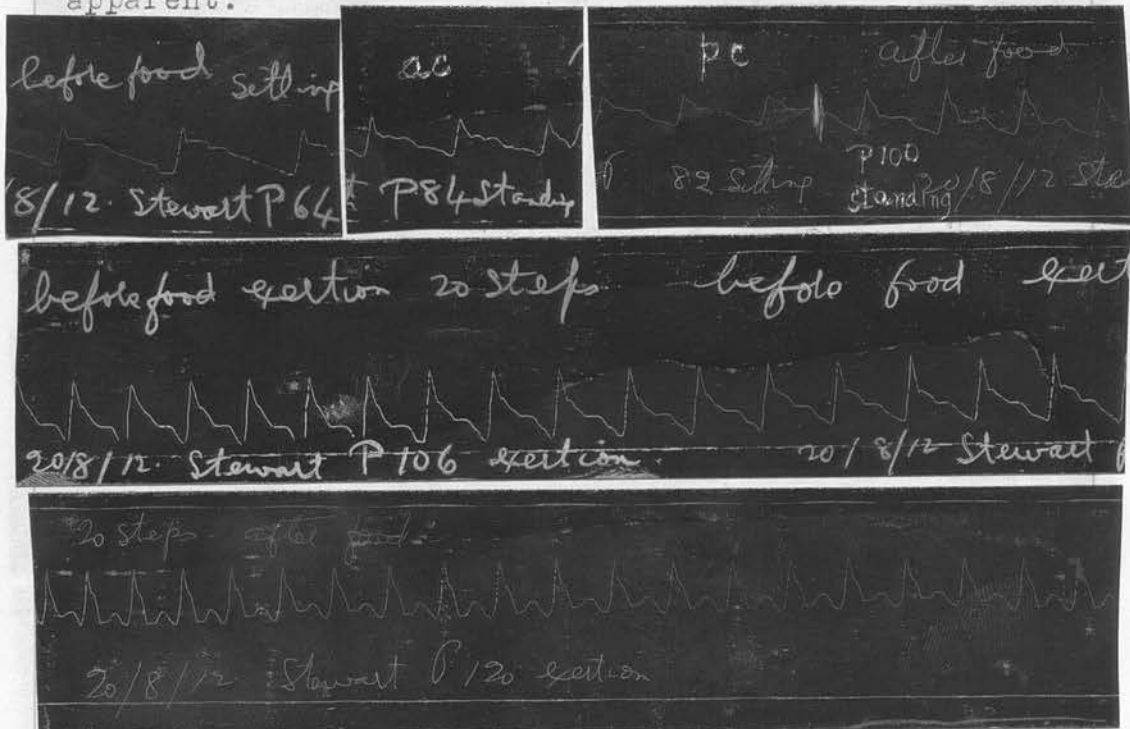 apparent.
before food sitting
8/12. Stewart P 64
ac
P84 Standing
pc after food
82 Sitting
P100
standing
20/8/12 Ste
before food exertion 20 Steps before food exert
20/8/12. Stewart P 106 exertion. 20/8/12 Stewart P
20 steps after food
20/8/12 Stewart P 120 exertion